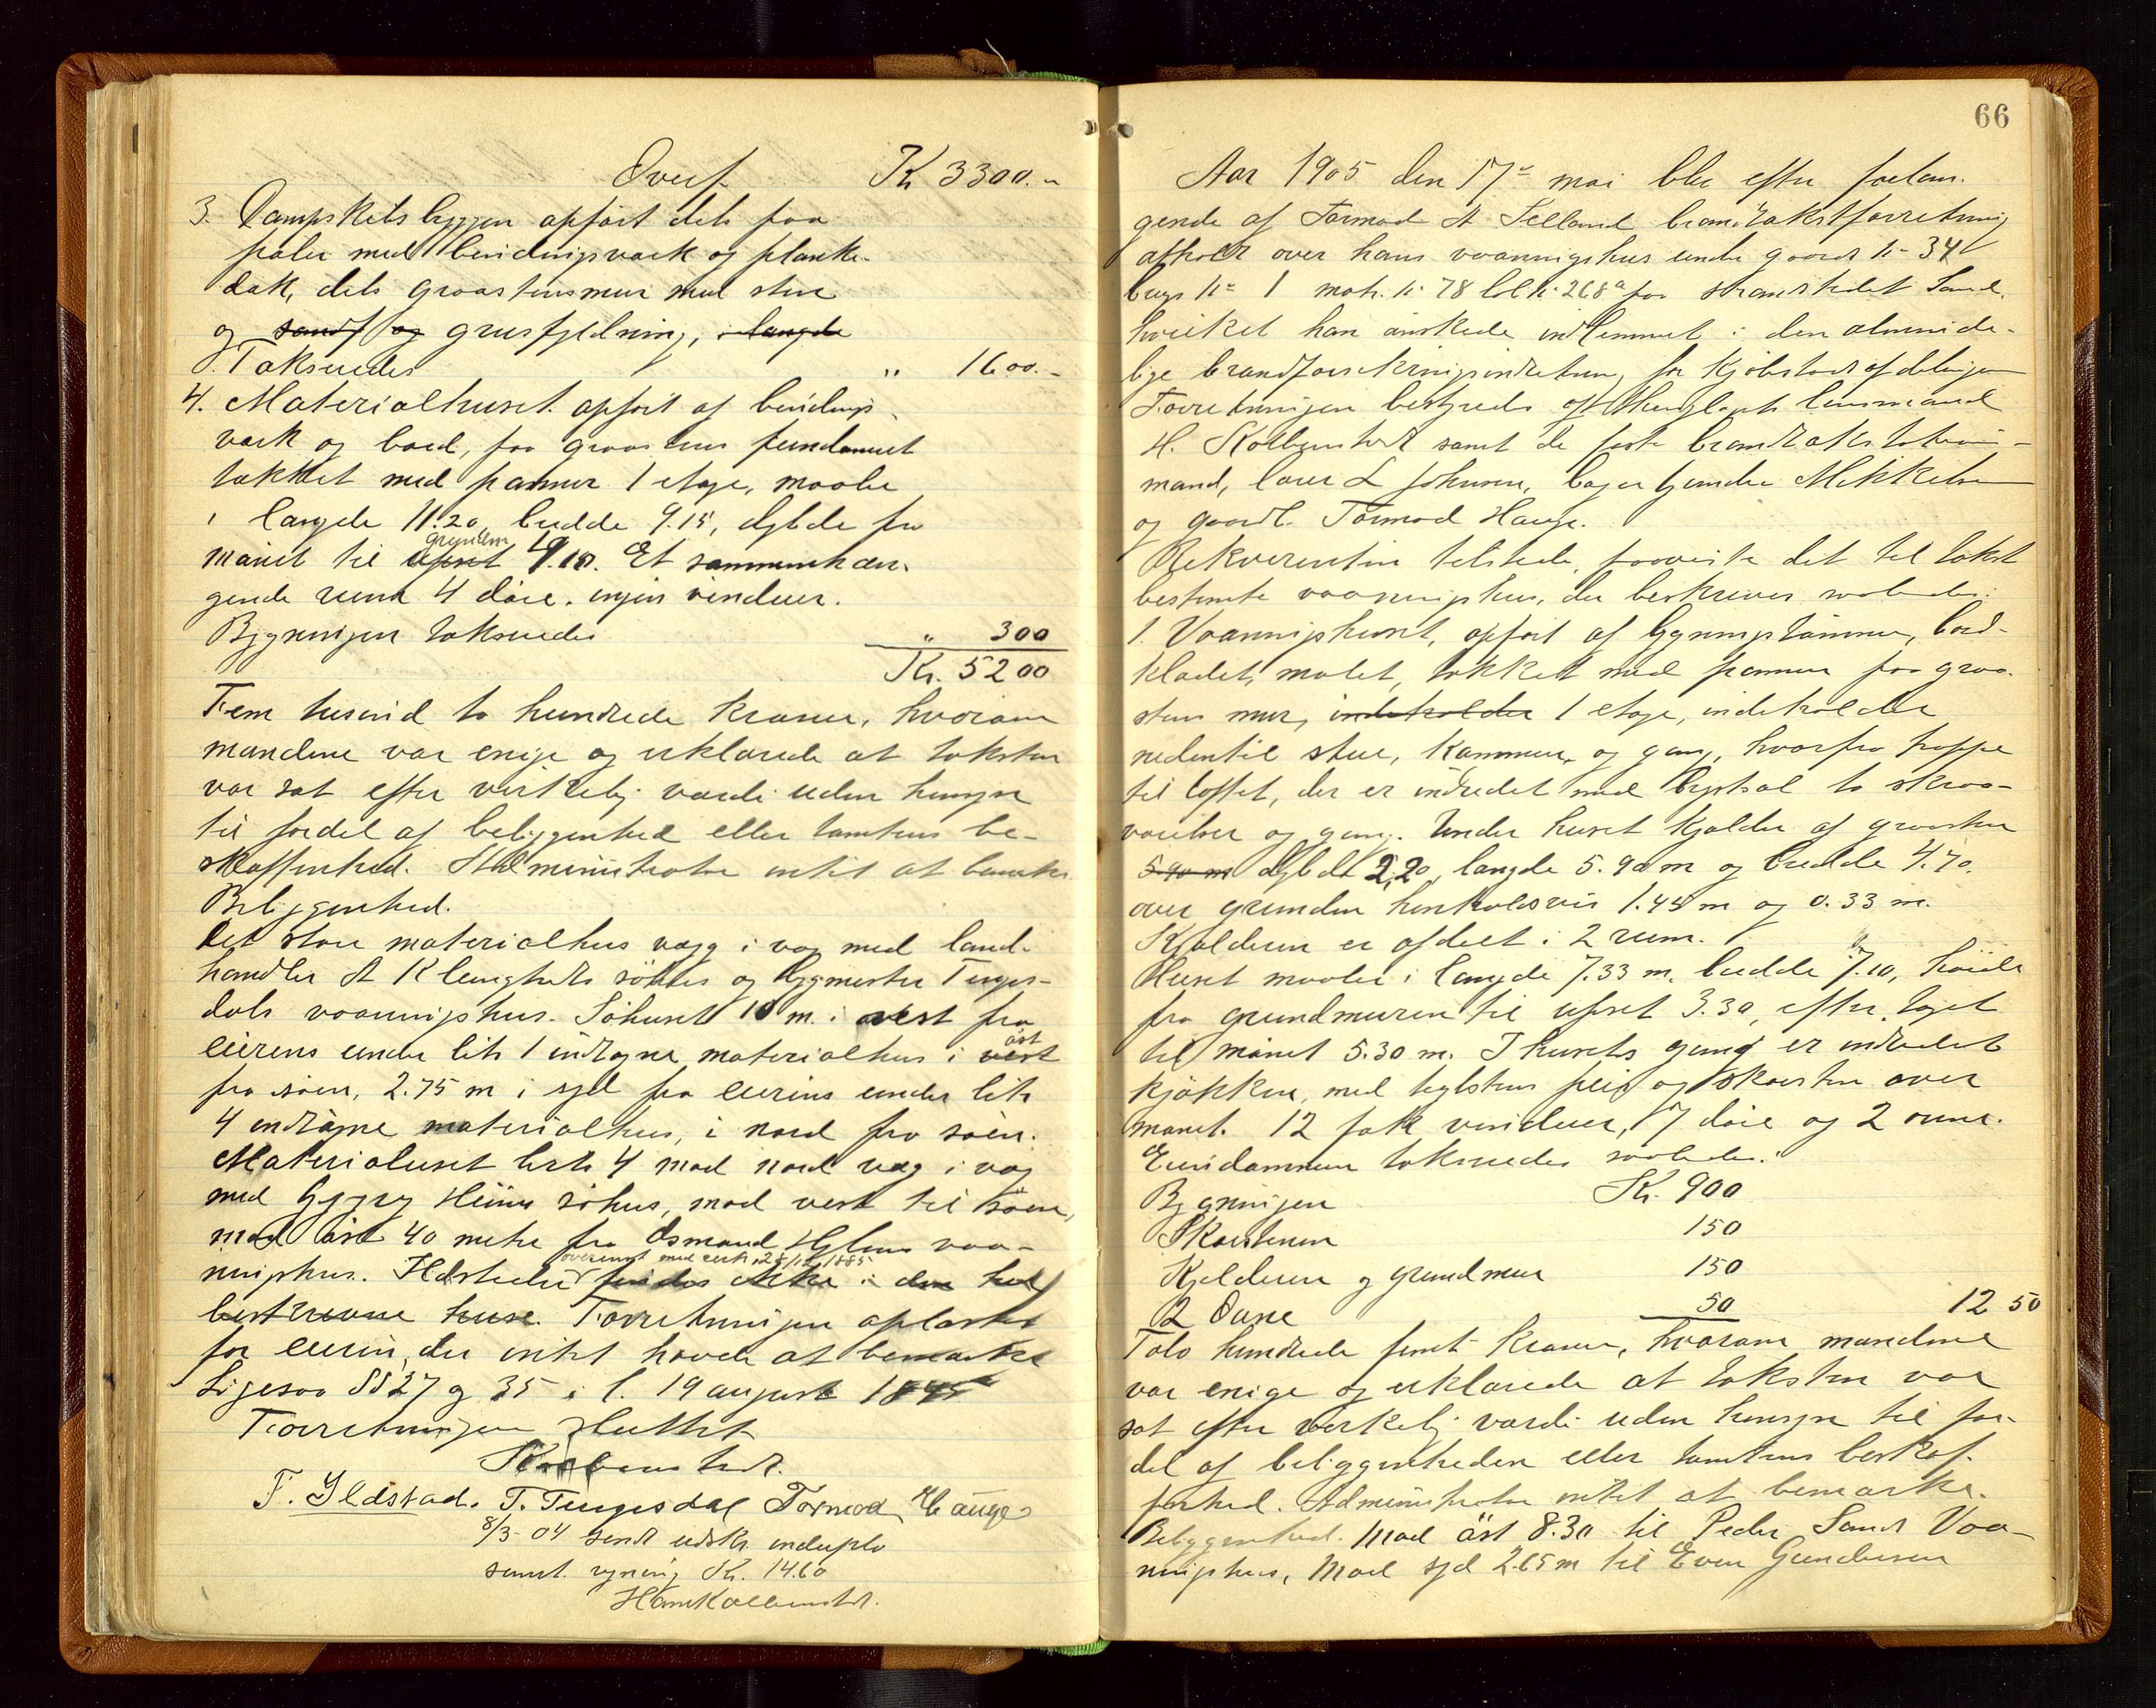 Overf. Kr 3300.-
3. Dampskibsbryggen opført dels paa
pæler med bindingsværk og planke-
dæk, dels graastensmur med sten
og sand og grusfyldning, i længde
Takseredes " 1600.-
4. Materialhuset opført af bindings-
værk og bord, paa graastens fundament
tækket med panner 1 etage, maaler
i længde 11.20, bredde 9.15, dybde fra
mønet til ufset grunden 4.10. Et sammenhæn-
gende rum 4 døre. ingen vinduer.
Bygningen takseredes " 300
Kr. 5200
Fem tusind to hundrede kroner, hvorom
mændene var enige og erklærede at taksten
var sat efter virkelig værdi uden hensyn
til fordel af beliggenhed eller tomtens be-
skaffenhed. Administrator intet at bemærke
Beliggenhed.
Det store materialhus væg i væg med land-
handler A Klungtvedts søhus og bygmester Tenges-
dals vaaningshus. Søhuset 10 m. i vest fra
eierens under litr 1 indtagne materialhus i vest øst
fra søen, 2.75 m i syd fra eierens under litr
4 indtagne materialhus, i nord fra søen.
Materialhuset litr 4 mod nord væg i væg
med Heims søhus, mod vest til søen,
mod øst 40 meter fra Osmund vaa-
ningshus. Ildsteder findes ikke i de her overensst med 28/12 1885
beskrevne huse. Forretningen oplæstes
for eieren, der intet havde at bemærke
Ligesaa §§ 27 og 35 i l. 19 august 1845
Forretningen sluttet
Kolbenstvedt.
F. Ildstad. T. Tengesdal Tormod Hauge
8/3-04 sendt udskr. induplo
samt regning Kr. 14.60
Hans Kolbenstvedt.
66
Aar 1905 den 17de mai blev efter forlan-
gende af Tormod A Selland brandtakstforretning
afholdt over hans vaaningshus under gaards nr 34
brugs nr 1 matr. nr 78 lbl nr 268a paa strandstedet Sand,
hvilket han ønskede indlemmet i den alminde-
lige brandforsikringsindretning for kjøbstadsafdelingen
Forretningen bestyredes af lensmand
H. Kolbenstvedt samt de faste brandtakstations-
mænd, lærer L Johnsen, bager Mikkelsen
og gaardb. Tormod Hauge.
Rekvirenten tilstede, paaviste det til takst
bestemte vaaningshus, der beskrives saaledes:
1. Vaaningshuset, opført af bygningstømmer, bord-
klædet, malet, tækket med panner paa graa-
stens mur, indeholder 1 etage, indeholder
nedentil stue, kammer, og gang, hvorfra trappe
til loftet, der er indredet med lystsal to skraa-
værelser og gang. Under huset kjælder af graasten
5.90 m dybde 2,20, længde 5.90 m og bredde 4.70.
over grunden henholdsvis 1.45 m og 0.33 m.
Kjælderen er afdelt i 2 rum.
Huset maaler i længde 7.33 m. bredde 7.10, høide
fra grundmuren til ufset 3.30, efter taget
til mønet 5.30 m. I husets gang er indredet
kjøkken, med teglstens peis og skorsten over
mønet. 12 fak vinduer, 7 døre og 2 ovne.
Eiendommen takseredes saaledes:
Bygningen Kr. 900
Skorstenen 150
Kjelderen og grundmur 150
2 Ovne 50 1250
Tolv hundrede femti kroner, hvorom mændene
var enige og erklærede at taksten var
sat efter verkelig værdi uden hensyn til for-
del af beliggenheden eller tomtens beskaf-
fenhed. Administrator intet at bemærke.
Beliggenhed. Mod øst 8.30 til Peder Sands Vaa-
ningshus, Mod syd 2.65 m til Even Gundersen